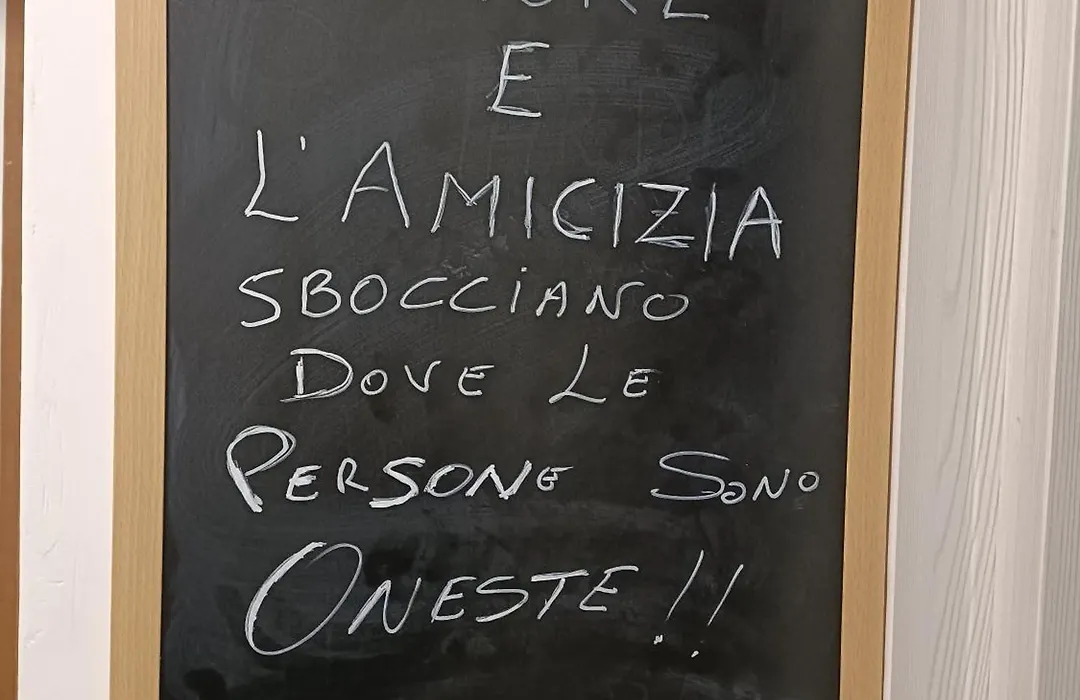 E
L'AMICIZIA
SBOCCIANO
DOVE LE
PERSONE SONO
ONESTE!!